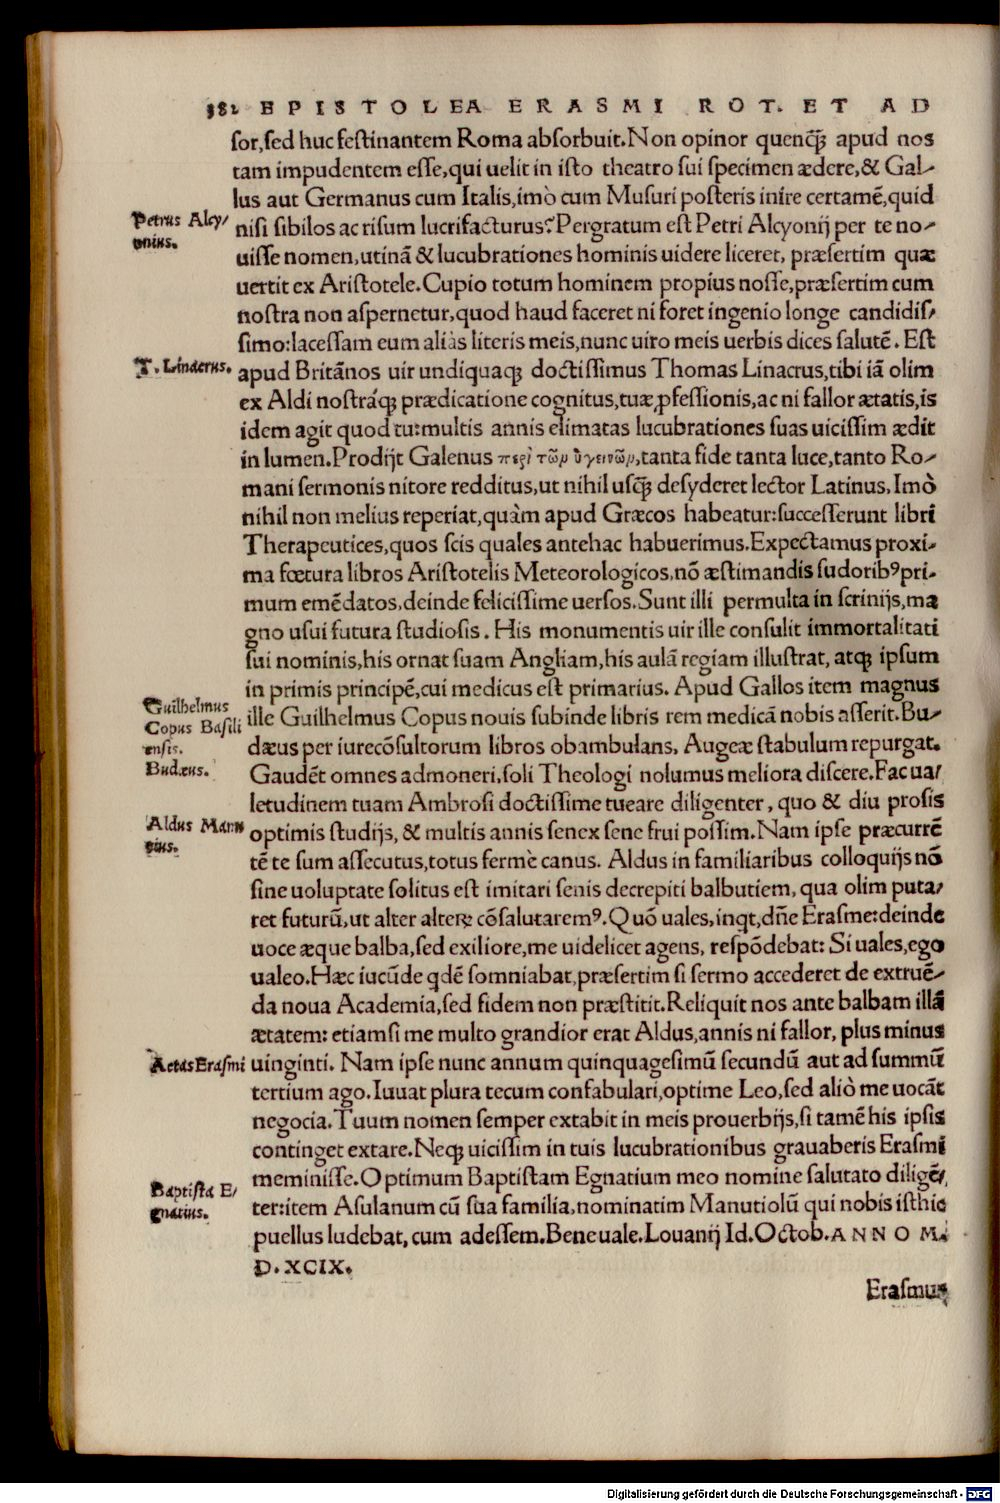 382 EPISTOLEA ERASMI ROT. ET AD
sor,sed huc festinantem Roma absorbuit.Non opinor quenq̃ꝫ apud nos
tam impudentem esse,qui uelit in isto theatro sui specimen ædere,& Gal-
lus aut Germanus cum Italis,imò cum Musuri posteris inire certamẽ,quid
Petrus Alcy/
onius.
nisi sibilos ac risum lucrifacturus?Pergratum est Petri Alcyonij per te no-
uisse nomen,utinã & lucubrationes hominis uidere liceret, præsertim quæ
uertit ex Aristotele.Cupio totum hominem propius nosse,præsertim cum
nostra non aspernetur,quod haud faceret ni foret ingenio longe candidis/
simo:lacessam eum aliàs literis meis,nunc uiro meis uerbis dices salutẽ. Est
T. Linacrus.
apud Britãnos uir undiquaqꝫ doctissimus Thomas Linacrus,tibi iã olim
ex Aldi nostráqꝫ prædicatione cognitus,tuæ ꝓfessionis,ac ni fallor ætatis,is
idem agit quod tu:multis annis elimatas lucubrationes suas uicissim ædit
in lumen.Prodijt Galenus περὶ τῶν ὑγεινῶν,tanta fide tanta luce,tanto Ro-
mani sermonis nitore redditus,ut nihil usq̃ꝫ desyderet lector Latinus,Imò
nihil non melius reperiat,quàm apud Græcos habeatur:successerunt libri
Therapeutices,quos scis quales antehac habuerimus.Expectamus proxi-
ma fœtura libros Aristotelis Meteorologicos,nõ æstimandis sudoribꝰ pri-
mum emẽdatos,deinde felicissime uersos.Sunt illi permulta in scrinijs,ma
gno usui futura studiosis. His monumentis uir ille consulit immortalitati
sui nominis,his ornat suam Angliam,his aulã regiam illustrat, atqꝫ ipsum
in primis principẽ,cui medicus est primarius. Apud Gallos item magnus
Guilhelmus
Copus Basili
ensis.
Budæus.
ille Guilhelmus Copus nouis subinde libris rem medicã nobis asserit.Bu-
dæus per iurecõsultorum libros obambulans, Augeæ stabulum repurgat.
Gaudẽt omnes admoneri,soli Theologi nolumus meliora discere.Fac ua/
letudinem tuam Ambrosi doctissime tueare diligenter, quo & diu prosis
Aldus Manu
tius.
optimis studijs,& multis annis senex sene frui possim.Nam ipse præcurrẽ
tẽ te sum assecutus,totus fermè canus. Aldus in familiaribus colloquijs nõ
sine uoluptate solitus est imitari senis decrepiti balbutiem, qua olim puta/
ret futurũ,ut alter alterꝝ cõsalutaremꝰ.Quõ uales,inqt,dñe Erasme:deinde
uoce æque balba,sed exiliore,me uidelicet agens, respõdebat: Si uales,ego
ualeo.Hæc iucũde qdẽ somniabat,præsertim si sermo accederet de extruẽ-
da noua Academia,sed fidem non præstitit.Reliquit nos ante balbam illã
ætatem: etiamsi me multo grandior erat Aldus,annis ni fallor, plus minus
Aetas Erasmi
uinginti. Nam ipse nunc annum quinquagesimũ secundũ aut ad summũ
tertium ago.Iuuat plura tecum confabulari,optime Leo,sed aliò me uocãt
negocia.Tuum nomen semper extabit in meis prouerbijs,si tamẽ his ipsis
continget extare.Neqꝫ uicissim in tuis lucubrationibus grauaberis Erasmi
Baptista E/
gnatius.
meminisse.Optimum Baptistam Egnatium meo nomine salutato diligẽ/
ter:item Asulanum cũ sua familia,nominatim Manutiolũ qui nobis isthic
puellus ludebat, cum adessem.Bene uale.Louanij Id.Octob.ANNO M.
D. XCIX.
Erasmus
Digitalisierung gefördert durch die Deutsche Forschungsgemeinschaft - DFG